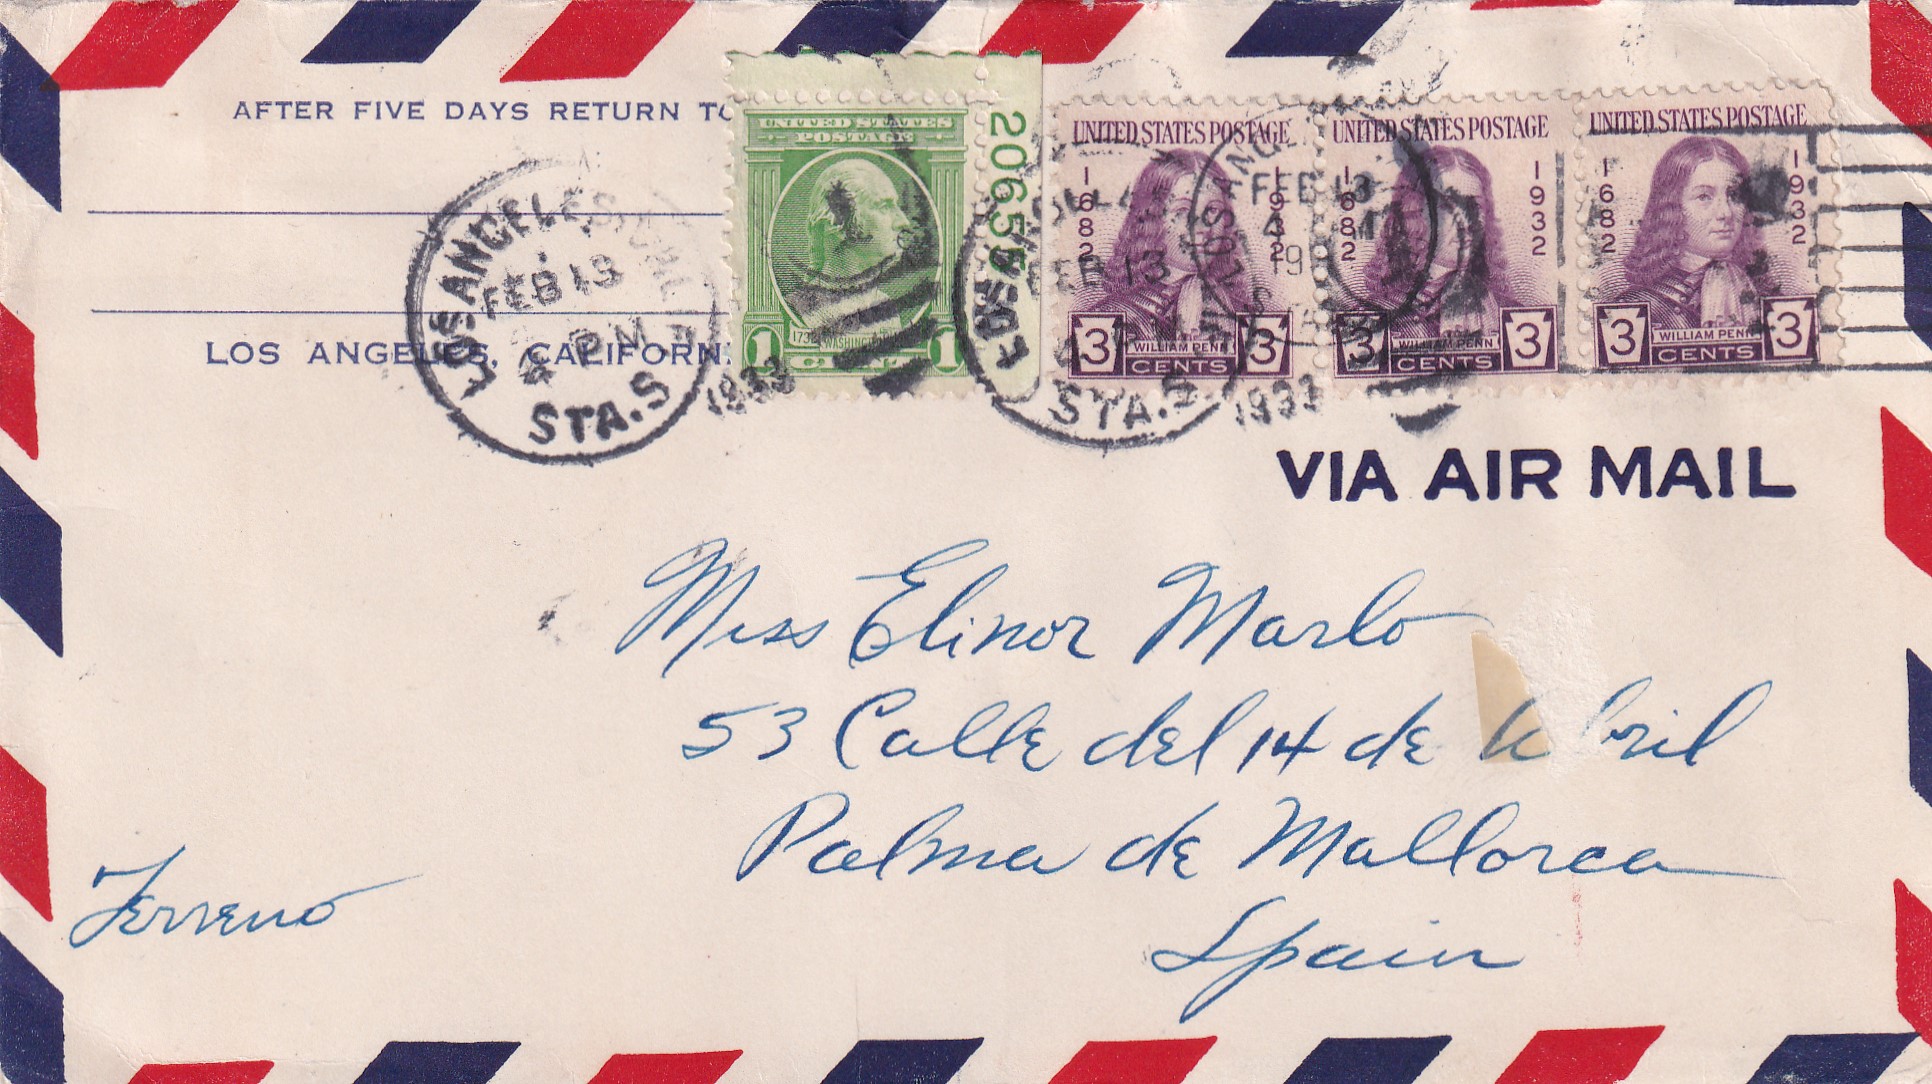 AFTER FIVE DAYS RETURN TO
LOS ANGELES, CALIFORN
LOS ANGELES
FEB 13
4 PM
1933
STA. S
UNITED STATES
POSTAGE
1732
WASHINGTON
1 CENT 1
UNITED STATES POSTAGE
1682 1932
WILLIAM PENN
3 CENTS 3
UNITED STATES POSTAGE
1682 1932
WILLIAM PENN
3 CENTS 3
UNITED STATES POSTAGE
1682 1932
WILLIAM PENN
3 CENTS 3
FEB 13
STA. S
1933
FEB 13
VIA AIR MAIL
Miss Elinor Marlo
53 Calle del 14 de Abril
Palma de Mallorca
Spain
Terreno